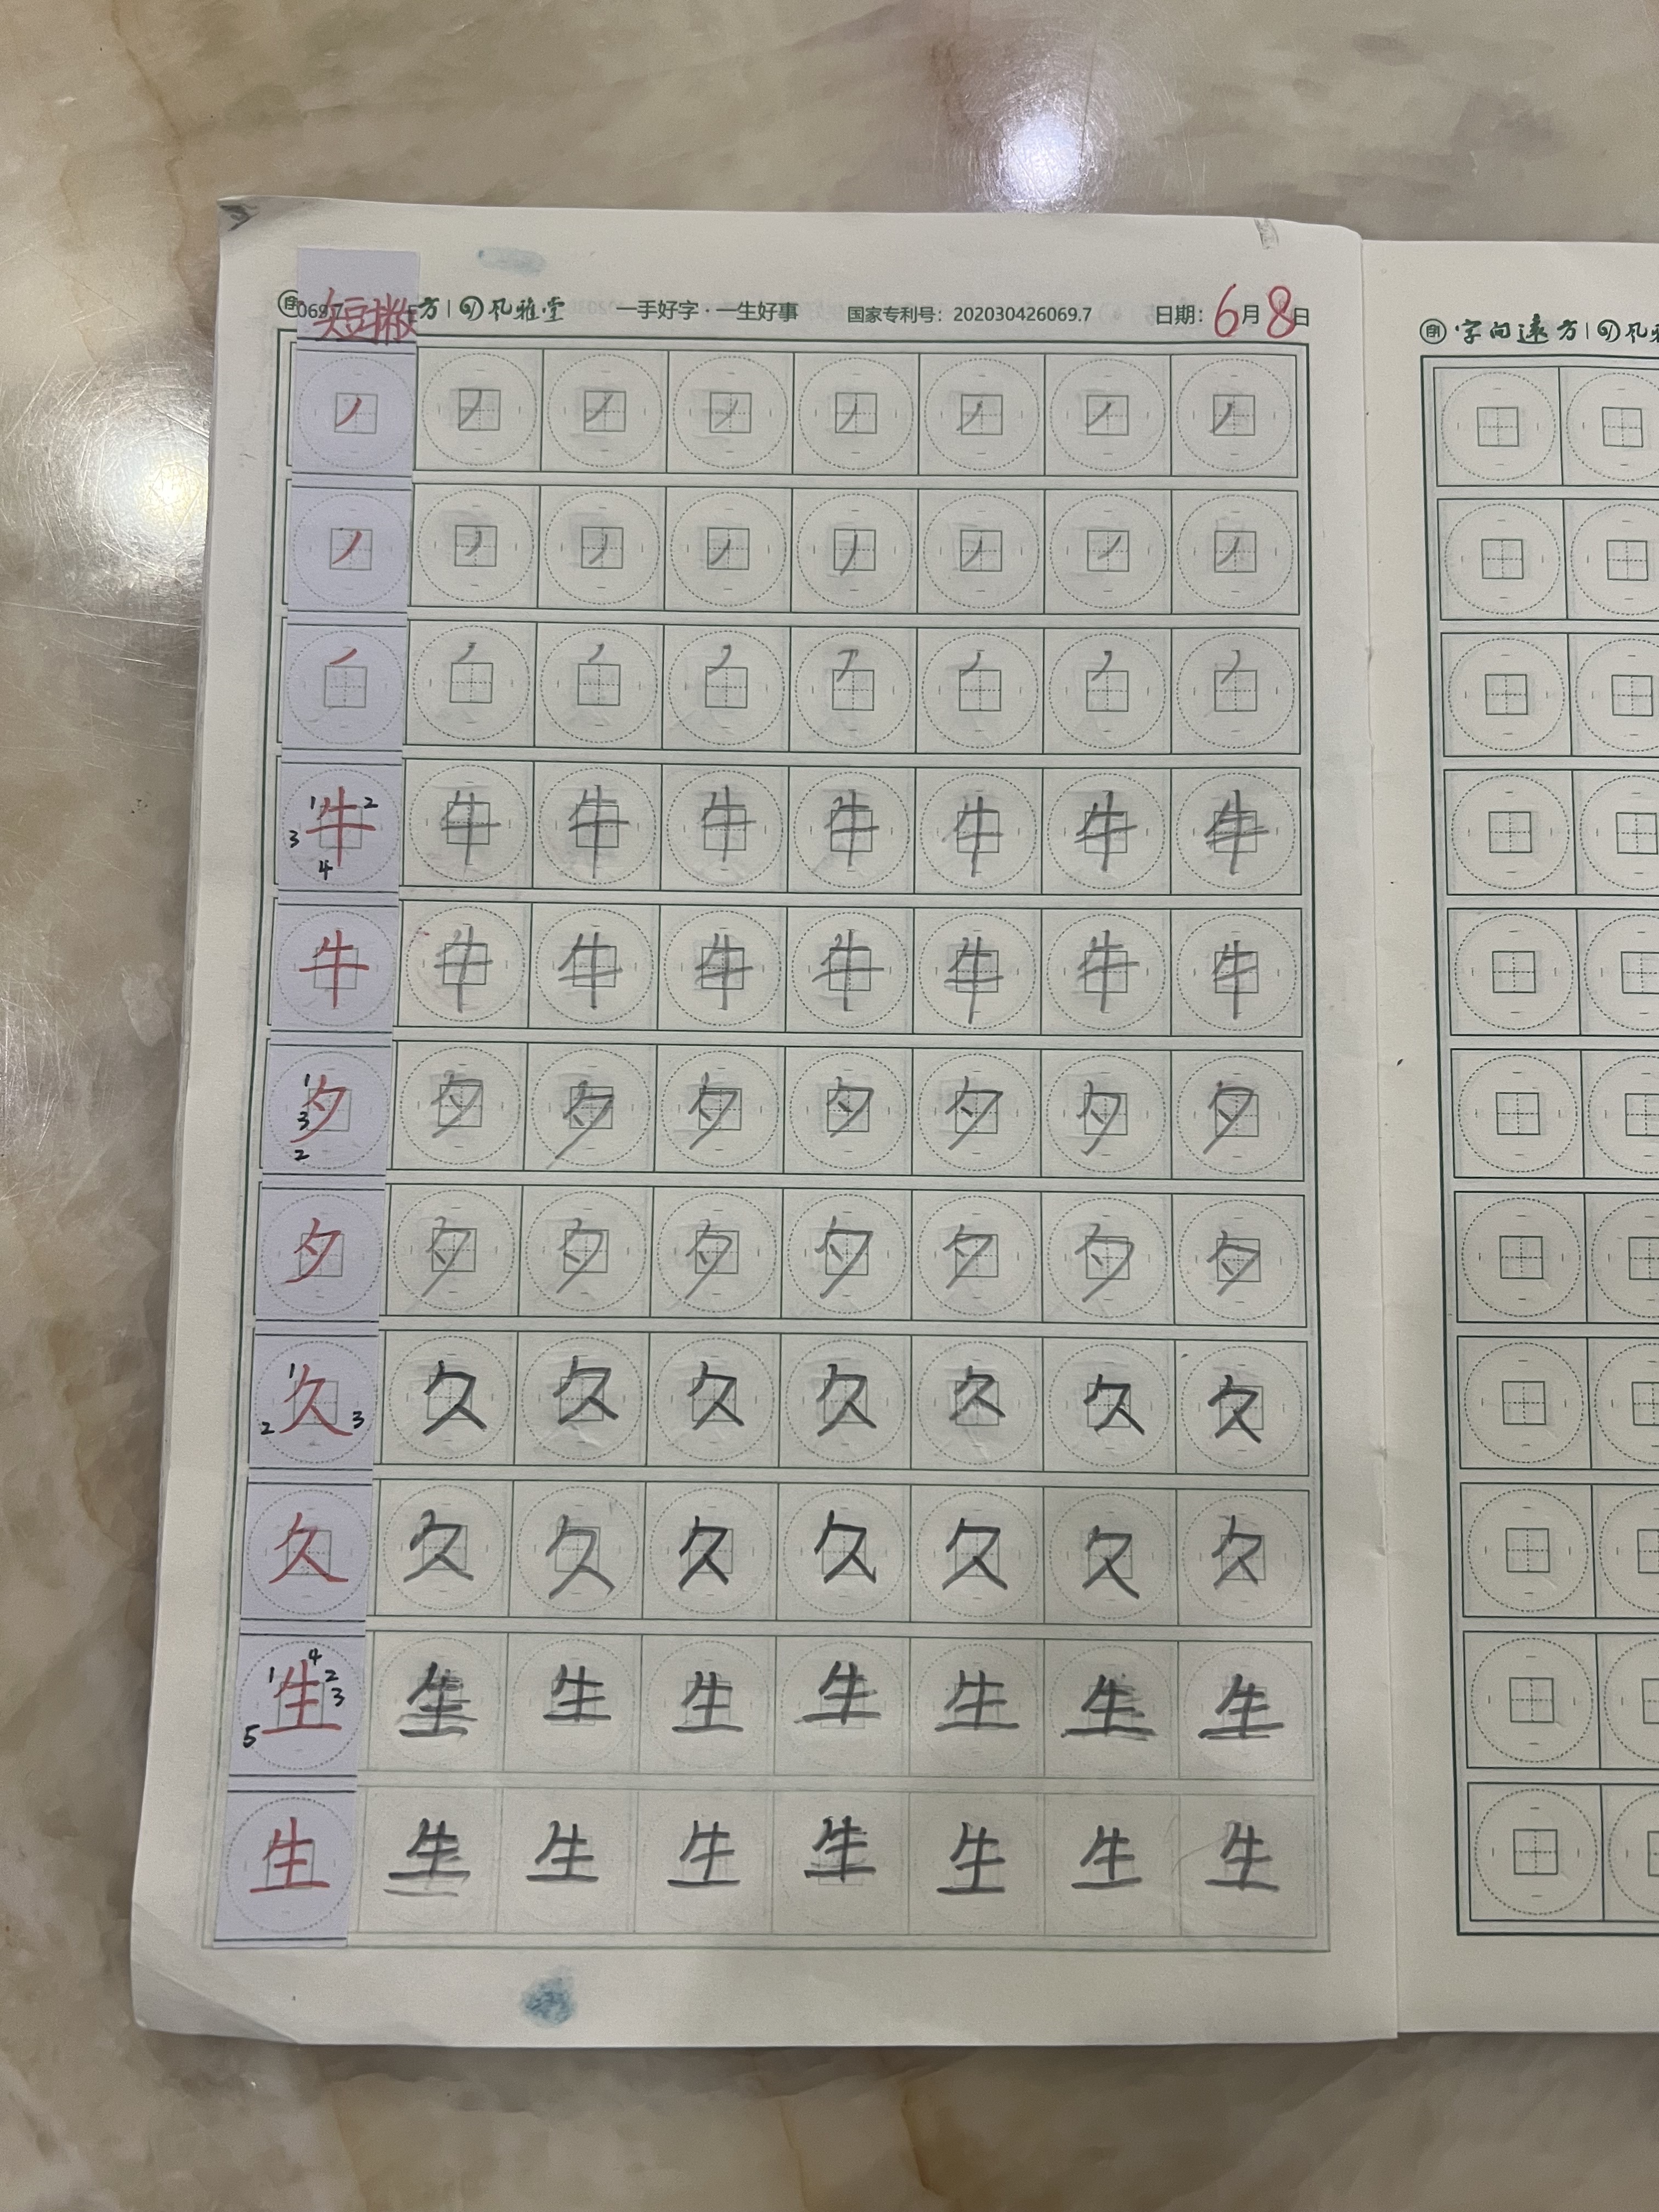 0697 短撇 方 | 风雅堂 一手好字·一生好事 国家专利号：202030426069.7 日期：6月8日
丿 丿 丿 丿 丿 丿 丿 丿
丿 丿 丿 丿 丿 丿 丿 丿
丿 丿 丿 丿 丿 丿 丿 丿
1 2 3 4 牛 牛 牛 牛 牛 牛 牛 牛
牛 牛 牛 牛 牛 牛 牛 牛
1 3 2 夕 夕 夕 夕 夕 夕 夕 夕
夕 夕 夕 夕 夕 夕 夕 夕
1 2 3 久 久 久 久 久 久 久 久
久 久 久 久 久 久 久 久
1 4 2 3 5 生 生 生 生 生 生 生 生
生 生 生 生 生 生 生 生
字向远方 | 风雅